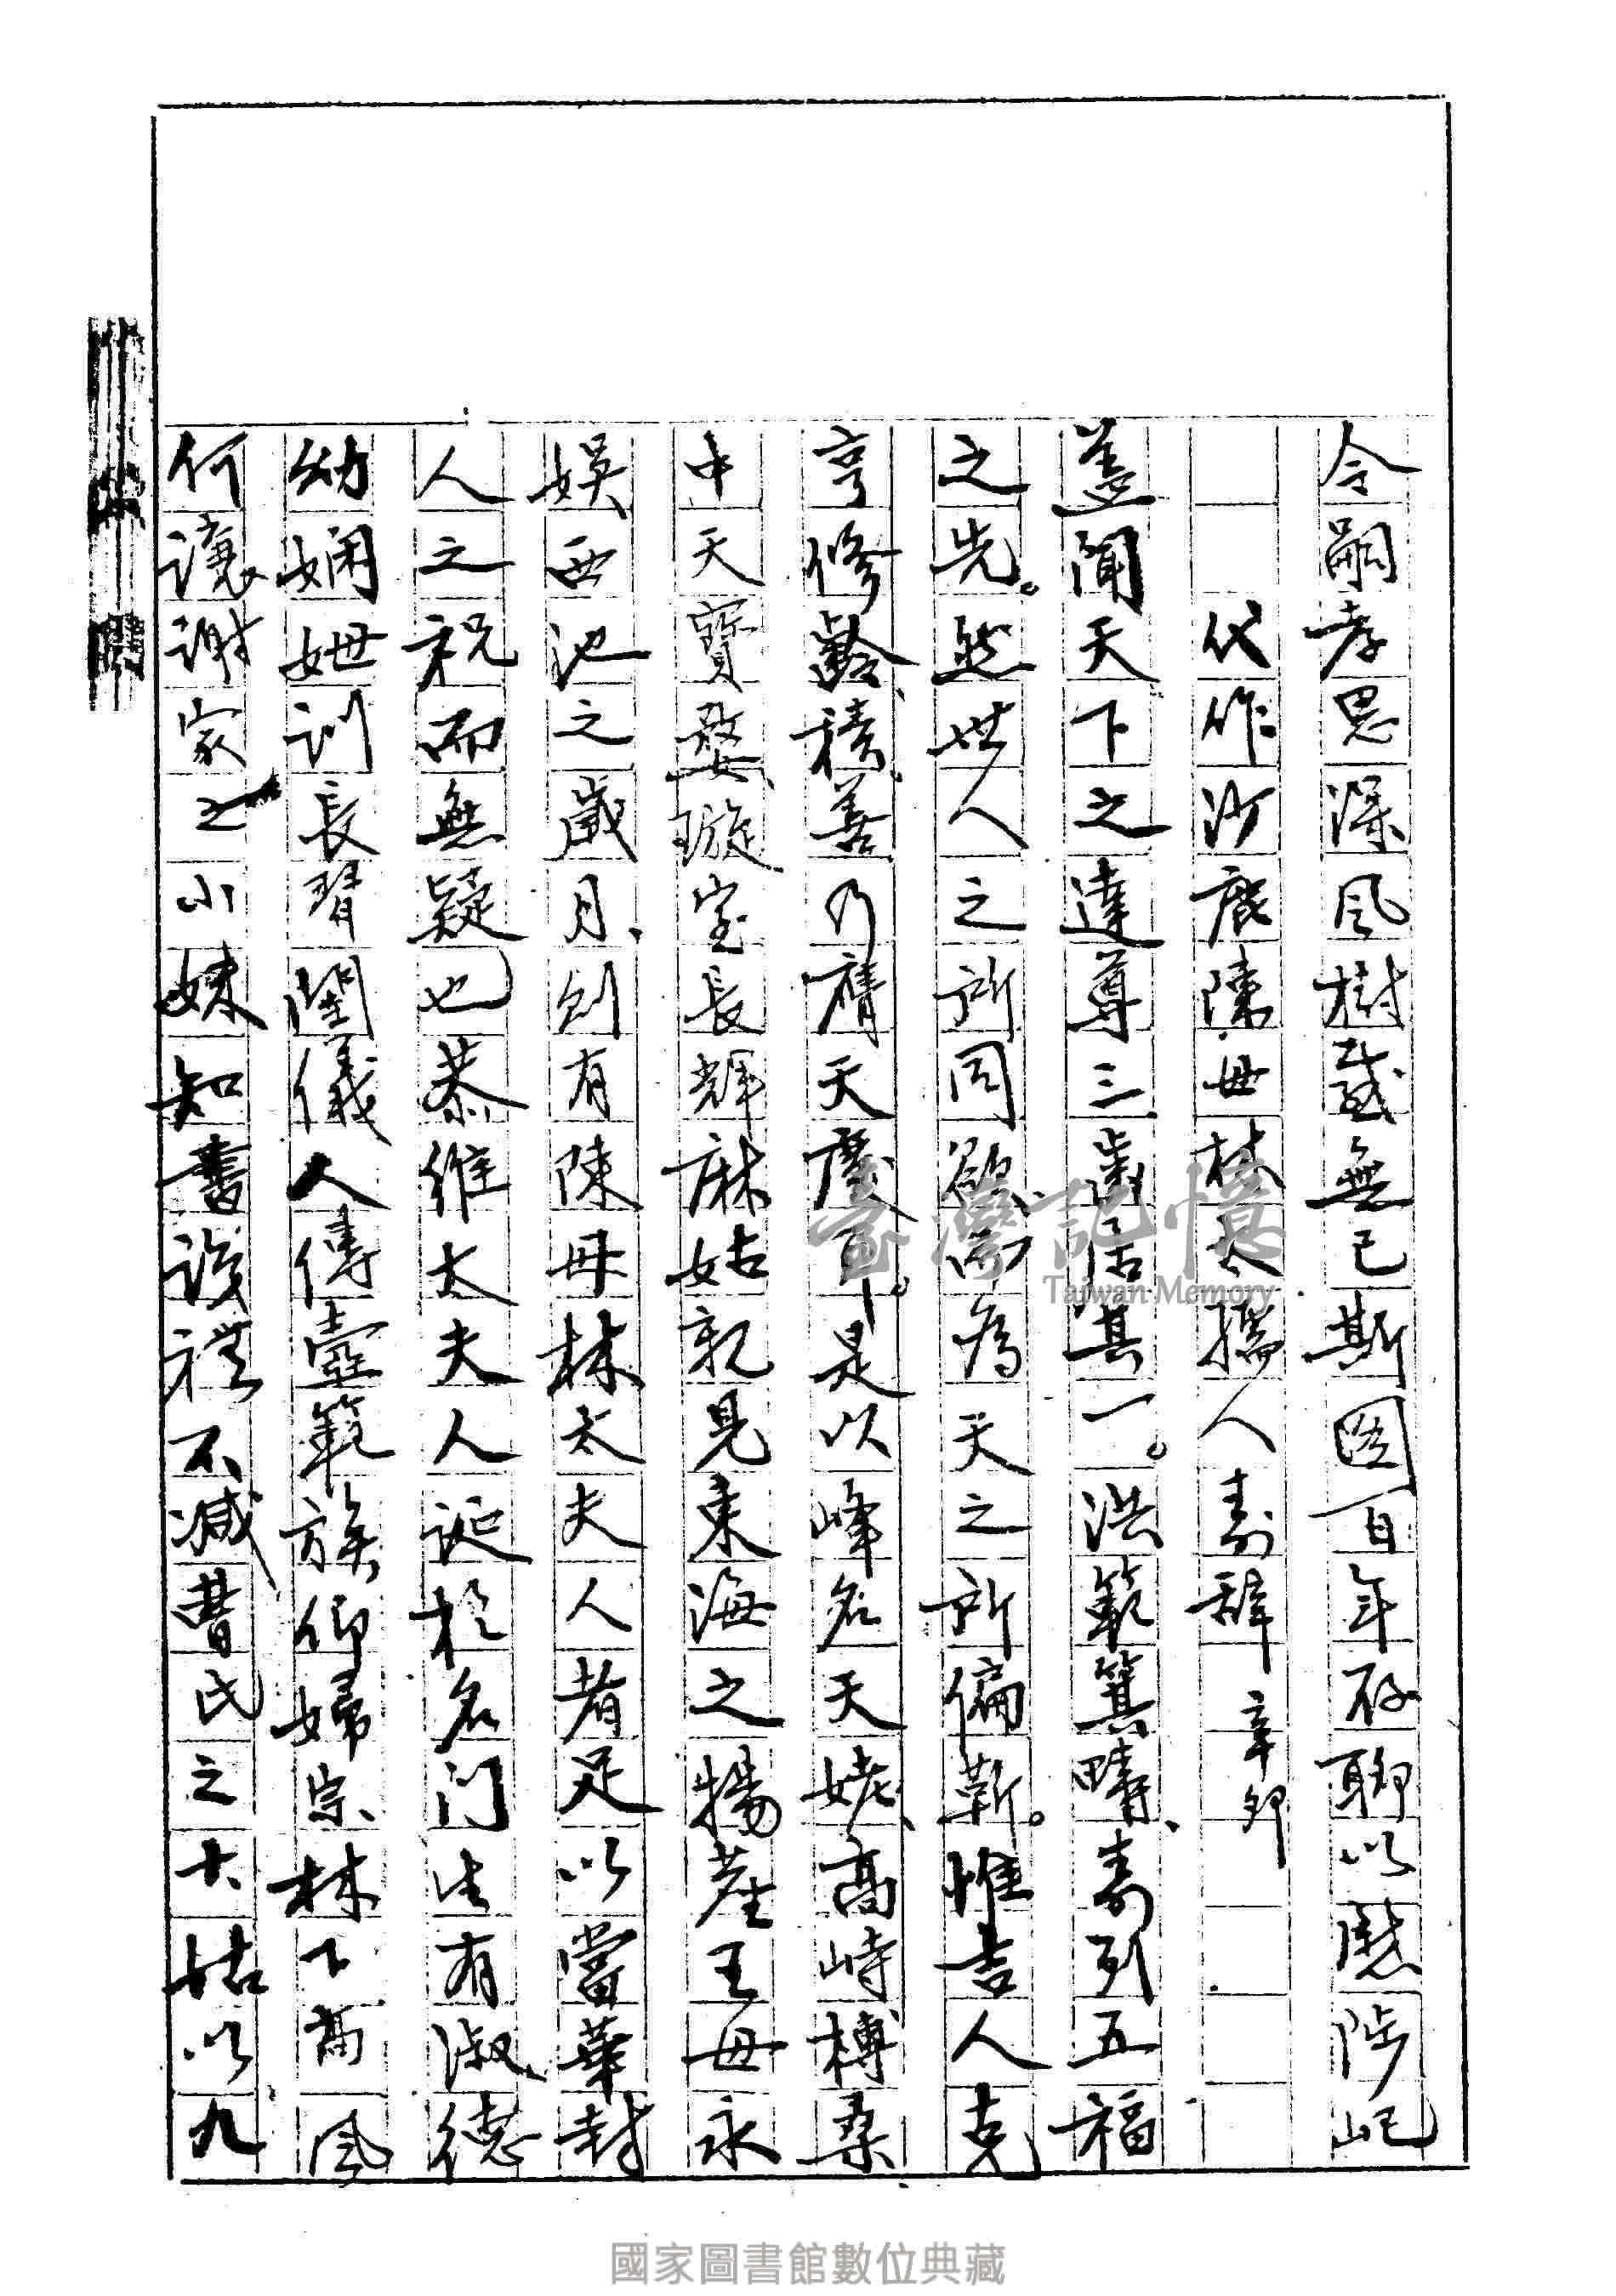 令嗣孝思深風樹感無已斯圖百年存聊以慰陟屺
代作沙鹿陳母林太孺人壽辭 辛卯
蓋聞天下之達尊三、齒居其一。洪範箕疇、壽列五福
之先。然世人之所同欲、而為天之所偏靳。惟吉人克
亨修齡、積善乃膺天慶耳。是以峰名天姥、高峙榑桑
中天寶婺、璇室長輝麻姑親見東海之揚塵王母永
娛西池之歲月、則有陳母林太夫人者足以當華封
人之祝而無疑也恭維太夫人誕於名門生有淑德
幼嫻姆訓長習閨儀人傳壼範族仰婦宗、林下高風
何讓謝家之小妹知書識禮不減曹氏之大姑以九
臺灣記憶
Taiwan Memory
國家圖書館數位典藏